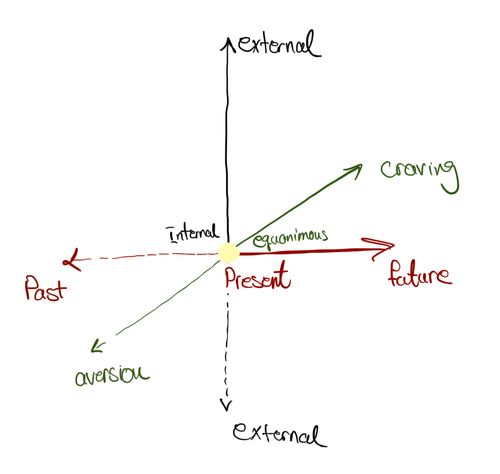 external
craving
Internal
equanimous
Past
Present
future
aversion
external